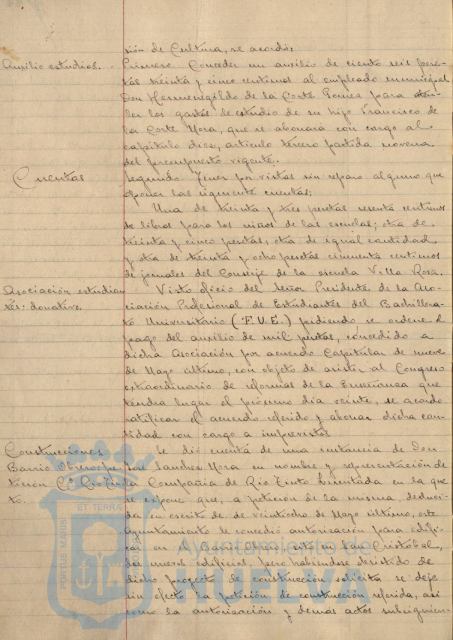 sión de Cultura, se acordó:
Auxilio estudios. Primero. Conceder un auxilio de ciento seis pese-
tas treinta y cinco centimos al empleado municipal
Don Hermenegildo de la Corte Gomez para aten-
der los gastos de estudio de su hijo Francisco de
la Corte Mora, que se abonara con cargo al
capitulo diez, articulo tercero partida novena
del presupuesto vigente.
Cuentas Segundo. Tener por vistas sin reparo alguno que
oponer las siguiente cuentas:
Una de treinta y tres pesetas sesenta centimos
de libros para los niños de las escuelas; otra de
treinta y cinco pesetas, otra de igual cantidad
y otra de treinta y ocho pesetas cincuenta centimos
de jornales del Conserje de la escuela Villa Rosa.
Asociación estudian Visto oficio del Señor Presidente de la Aso-
tes - donativo. ciación Profesional de Estudiantes del Bachillera-
to Universitario (F.U.E.) pidiendo se ordene el
pago del auxilio de mil pesetas, concedido a
dicha Asociación por acuerdo Capitular de nueve
de Mayo ultimo, con objeto de asistir al Congreso
extraordinario de reformas de la Enseñanza que
tendra lugar el próximo dia veinte, se acordó
ratificar el acuerdo referido y abonar dicha can-
tidad con cargo a imprevistos
Construcciones Se dió cuenta de una instancia de Don
Barrio Obrero José Sanchez Mora en nombre y representación de
Cª Rio Tin la Compañia de Rio Tinto presentada en la que
to. se expone que, a petición de la misma, deduci-
da en escrito de de veintiocho de Mayo ultimo, este
Ayuntamiento le concedió autorización para edifi-
car en el Barrio Obrero, sito en San Cristóbal,
dos nuevos edificios, pero habiendose desistido de
dicho proyecto de construcción solicita se deje
sin efecto la petición de construcción referida, así
como la autorización y demás actos subsiguien-
PORTUS MARIS
ET TERRÆ
Ayuntamiento de
HUELVA